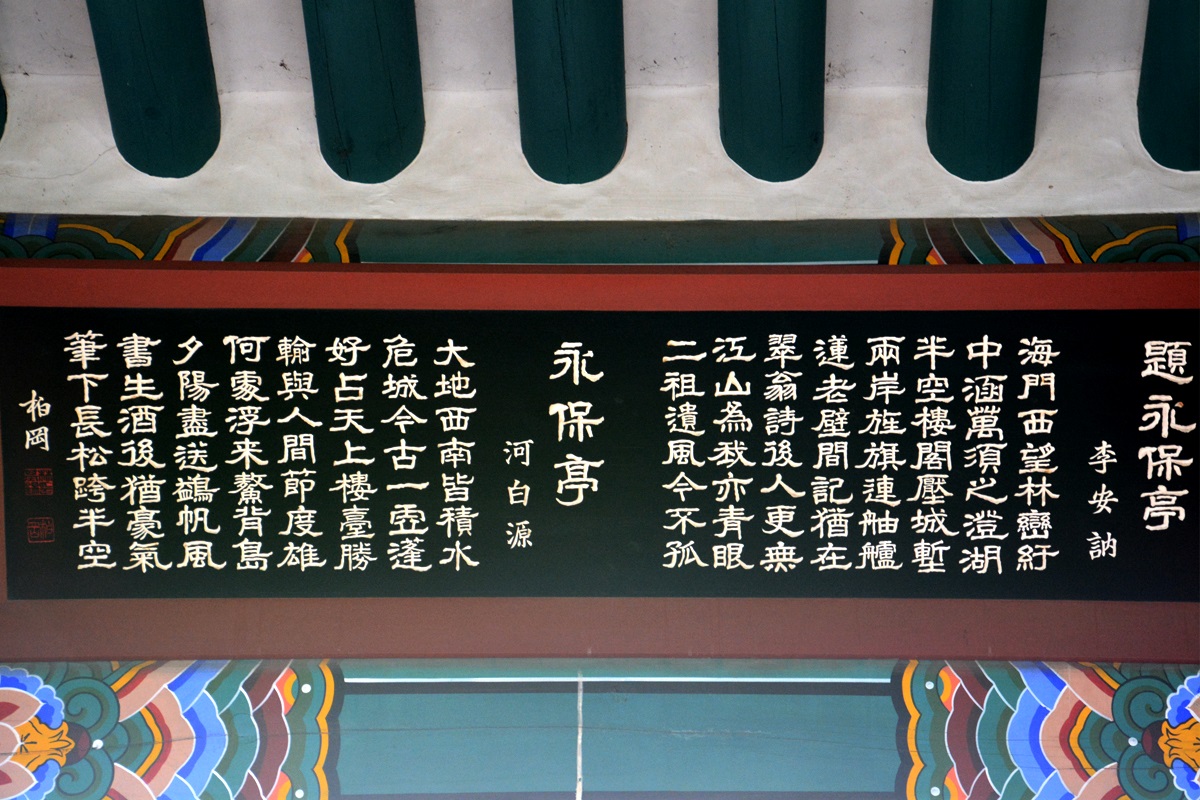 題永保亭
李安訥
海門西望林巒紆
中涵萬頃之澄湖
半空樓閣壓城塹
兩岸旌旗連舳艫
蓮老壁間記猶在
翠翁詩後人更無
江山為我亦青眼
二祖遺風今不孤
永保亭
河白源
大地西南皆積水
危城今古一孤蓬
好占天上樓臺勝
輸與人間節度雄
何處浮来鰲背島
夕陽盡送鷁帆風
書生酒後猶豪氣
筆下長松跨半空
柏岡